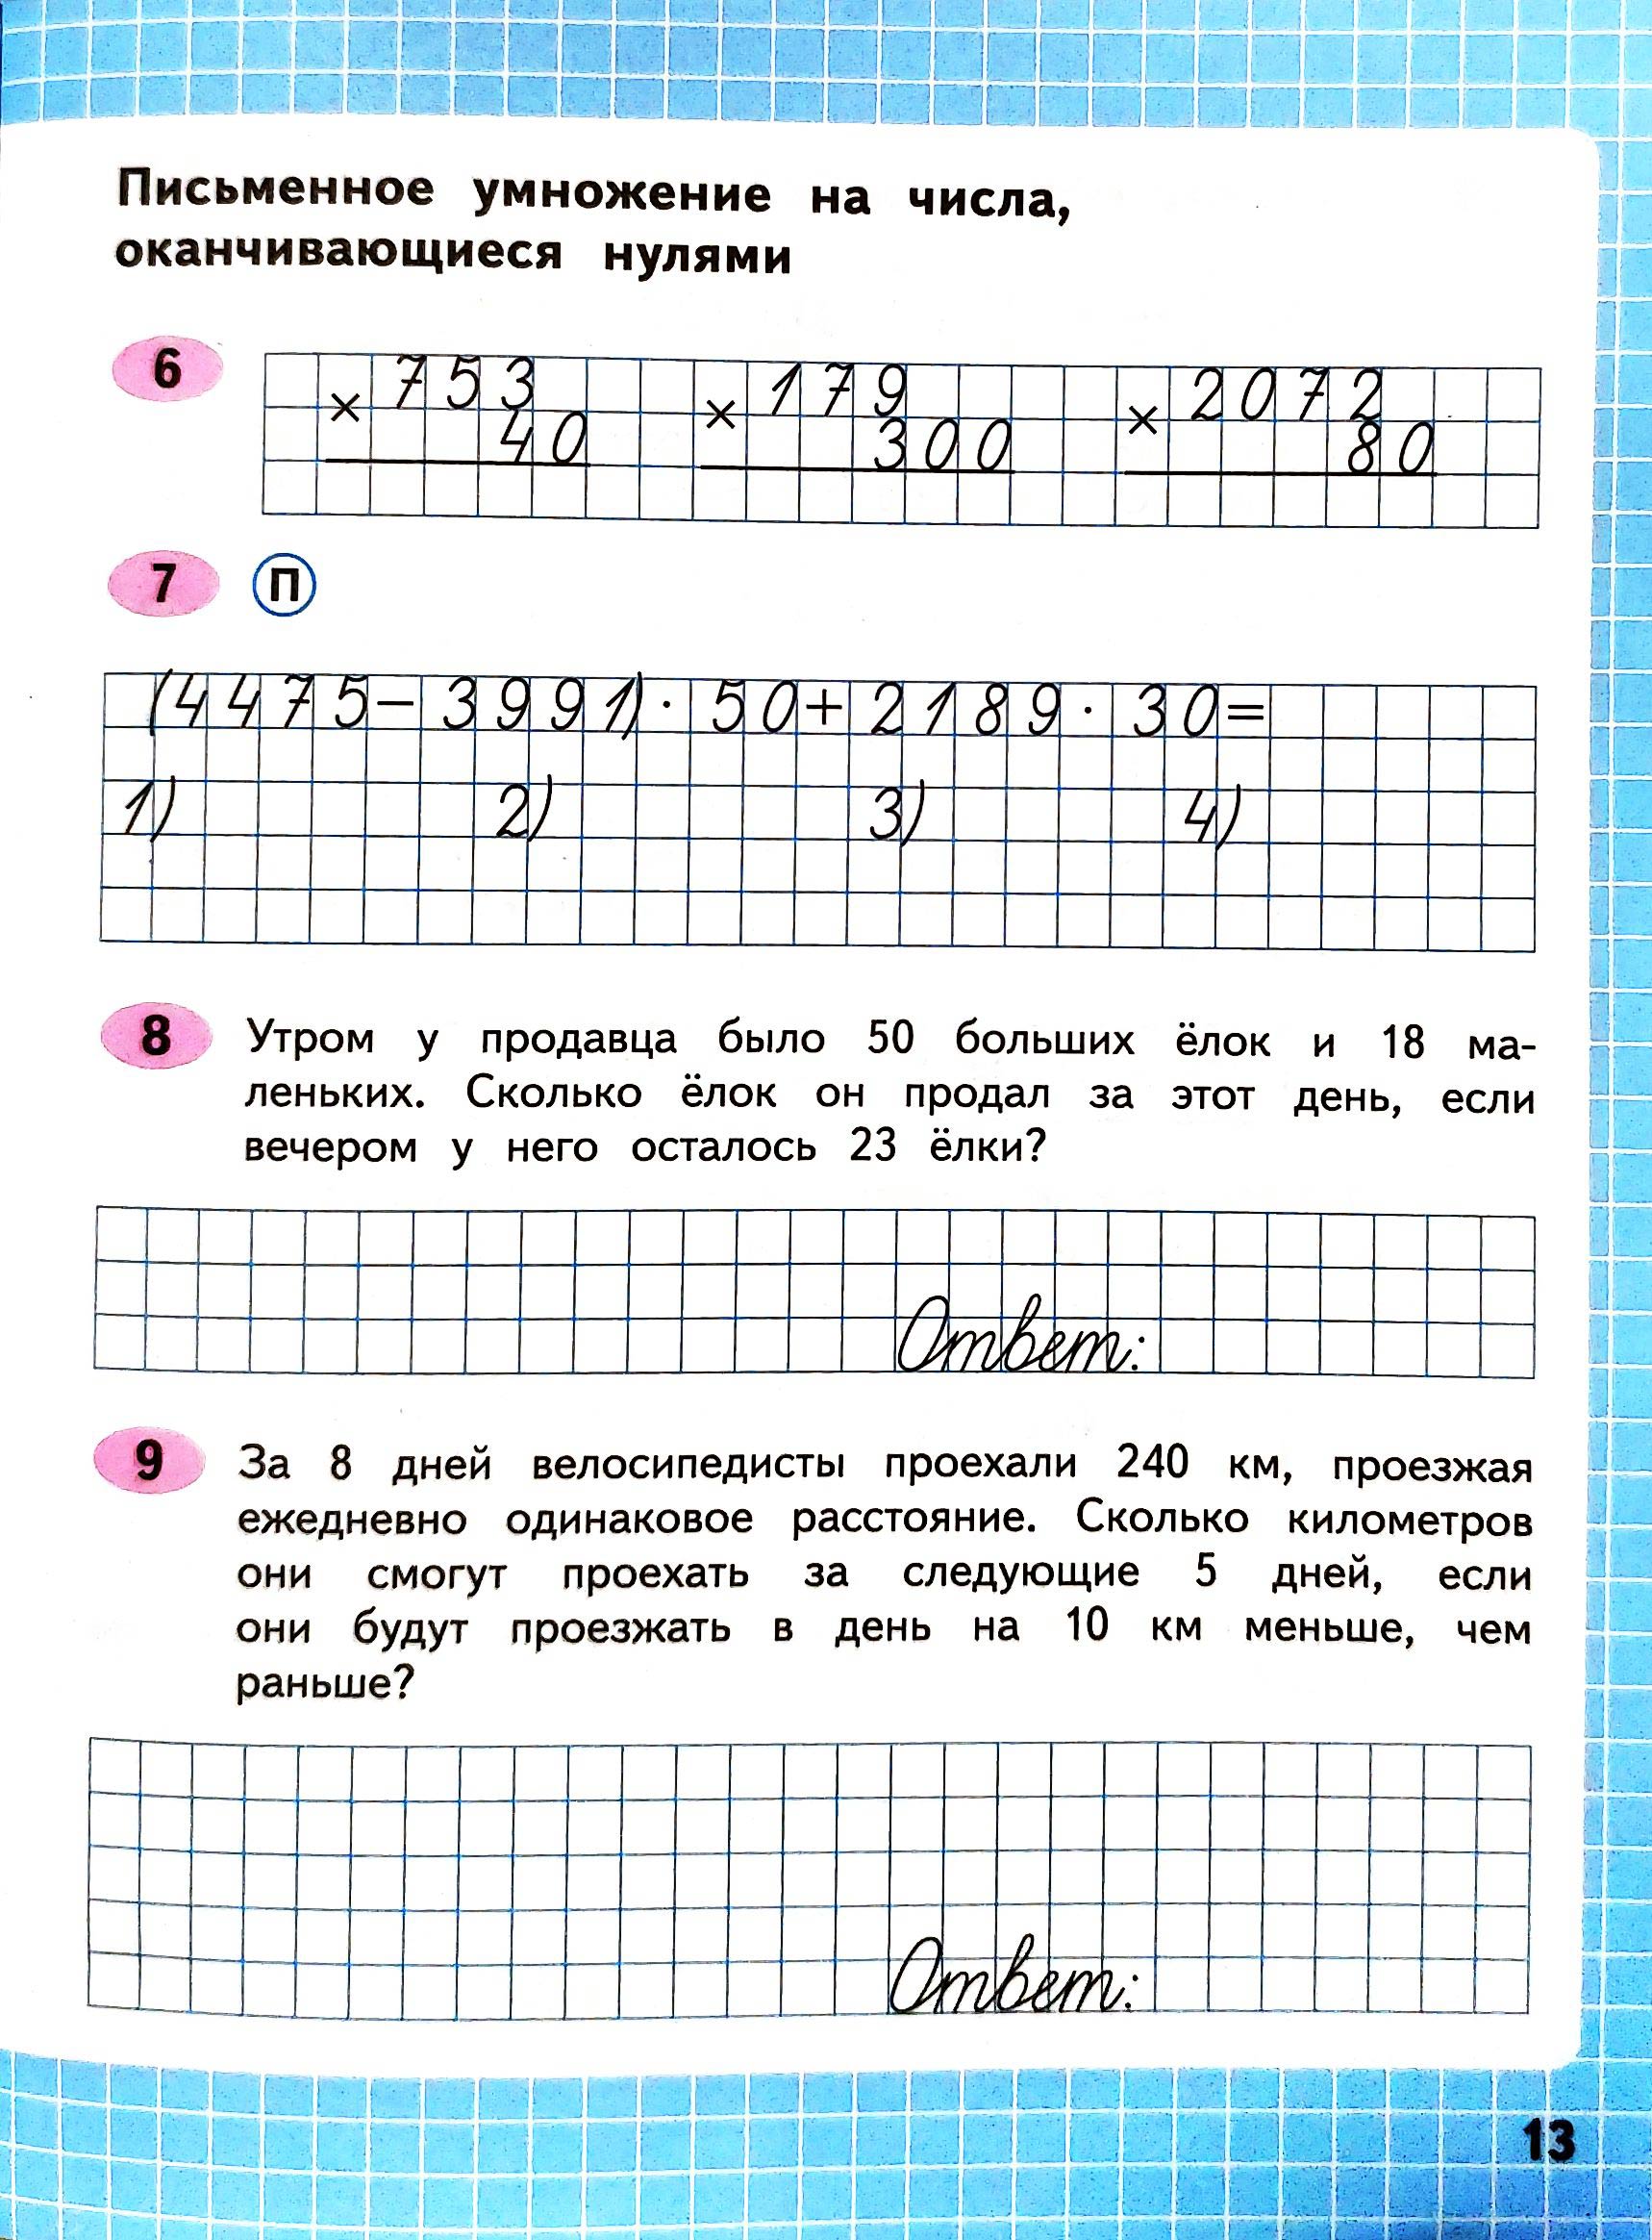 Письменное умножение на числа,
оканчивающиеся нулями
6
× 753
40
× 179
300
× 2072
80
7 П
(4475-3991)·50+2189·30=
1) 2) 3) 4)
8 Утром у продавца было 50 больших ёлок и 18 ма-
леньких. Сколько ёлок он продал за этот день, если
вечером у него осталось 23 ёлки?
Ответ:
9 За 8 дней велосипедисты проехали 240 км, проезжая
ежедневно одинаковое расстояние. Сколько километров
они смогут проехать за следующие 5 дней, если
они будут проезжать в день на 10 км меньше, чем
раньше?
Ответ:
13